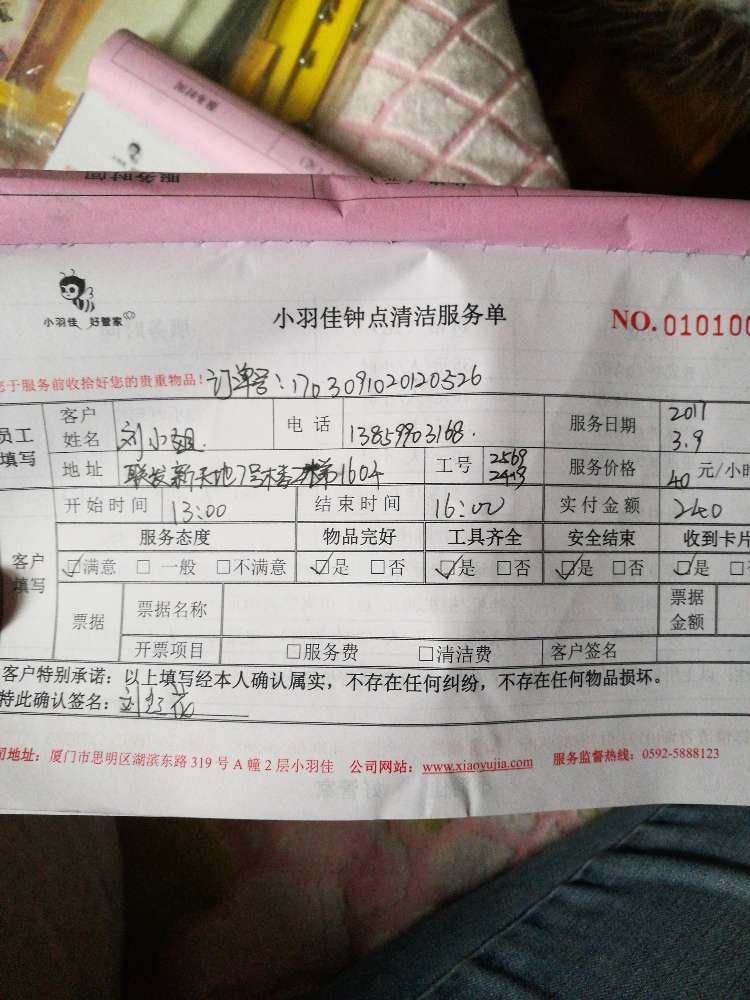 服务时间
服务时间
小羽佳 好管家
小羽佳钟点清洁服务单
NO.010100
您于服务前收拾好您的贵重物品! 订单号:1703091020120526
员工填写 客户姓名 刘小姐. 电话 13859903168. 服务日期 2017 3.9
地址 联发新天地7号楼2梯1604 工号 2569 2413 服务价格 40 元/小时
客户填写 开始时间 13:00 结束时间 16:00 实付金额 240
服务态度 物品完好 工具齐全 安全结束 收到卡片
☑满意 □一般 □不满意 ☑是 □否 ☑是 □否 ☑是 □否 ☑是 □
票据 票据名称 票据金额
开票项目 □服务费 □清洁费 客户签名
客户特别承诺:以上填写经本人确认属实,不存在任何纠纷,不存在任何物品损坏。
特此确认签名:刘
司地址:厦门市思明区湖滨东路 319 号 A 幢 2 层小羽佳 公司网站:www.xiaoyujia.com 服务监督热线:0592-5888123